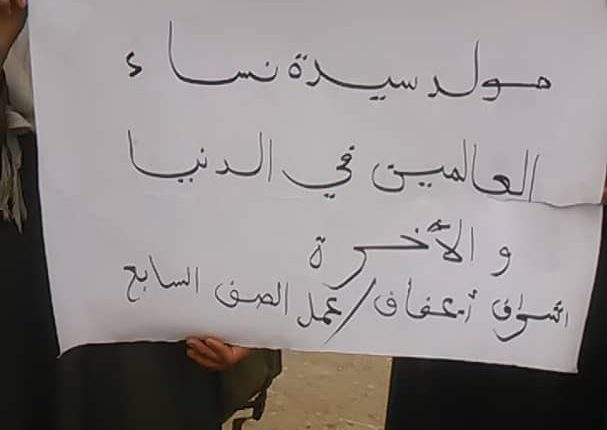 مولد سيدة نساء
العالمين في الدنيا
والآخرة
اشواق أ.عفاف/عمل الصف السابع